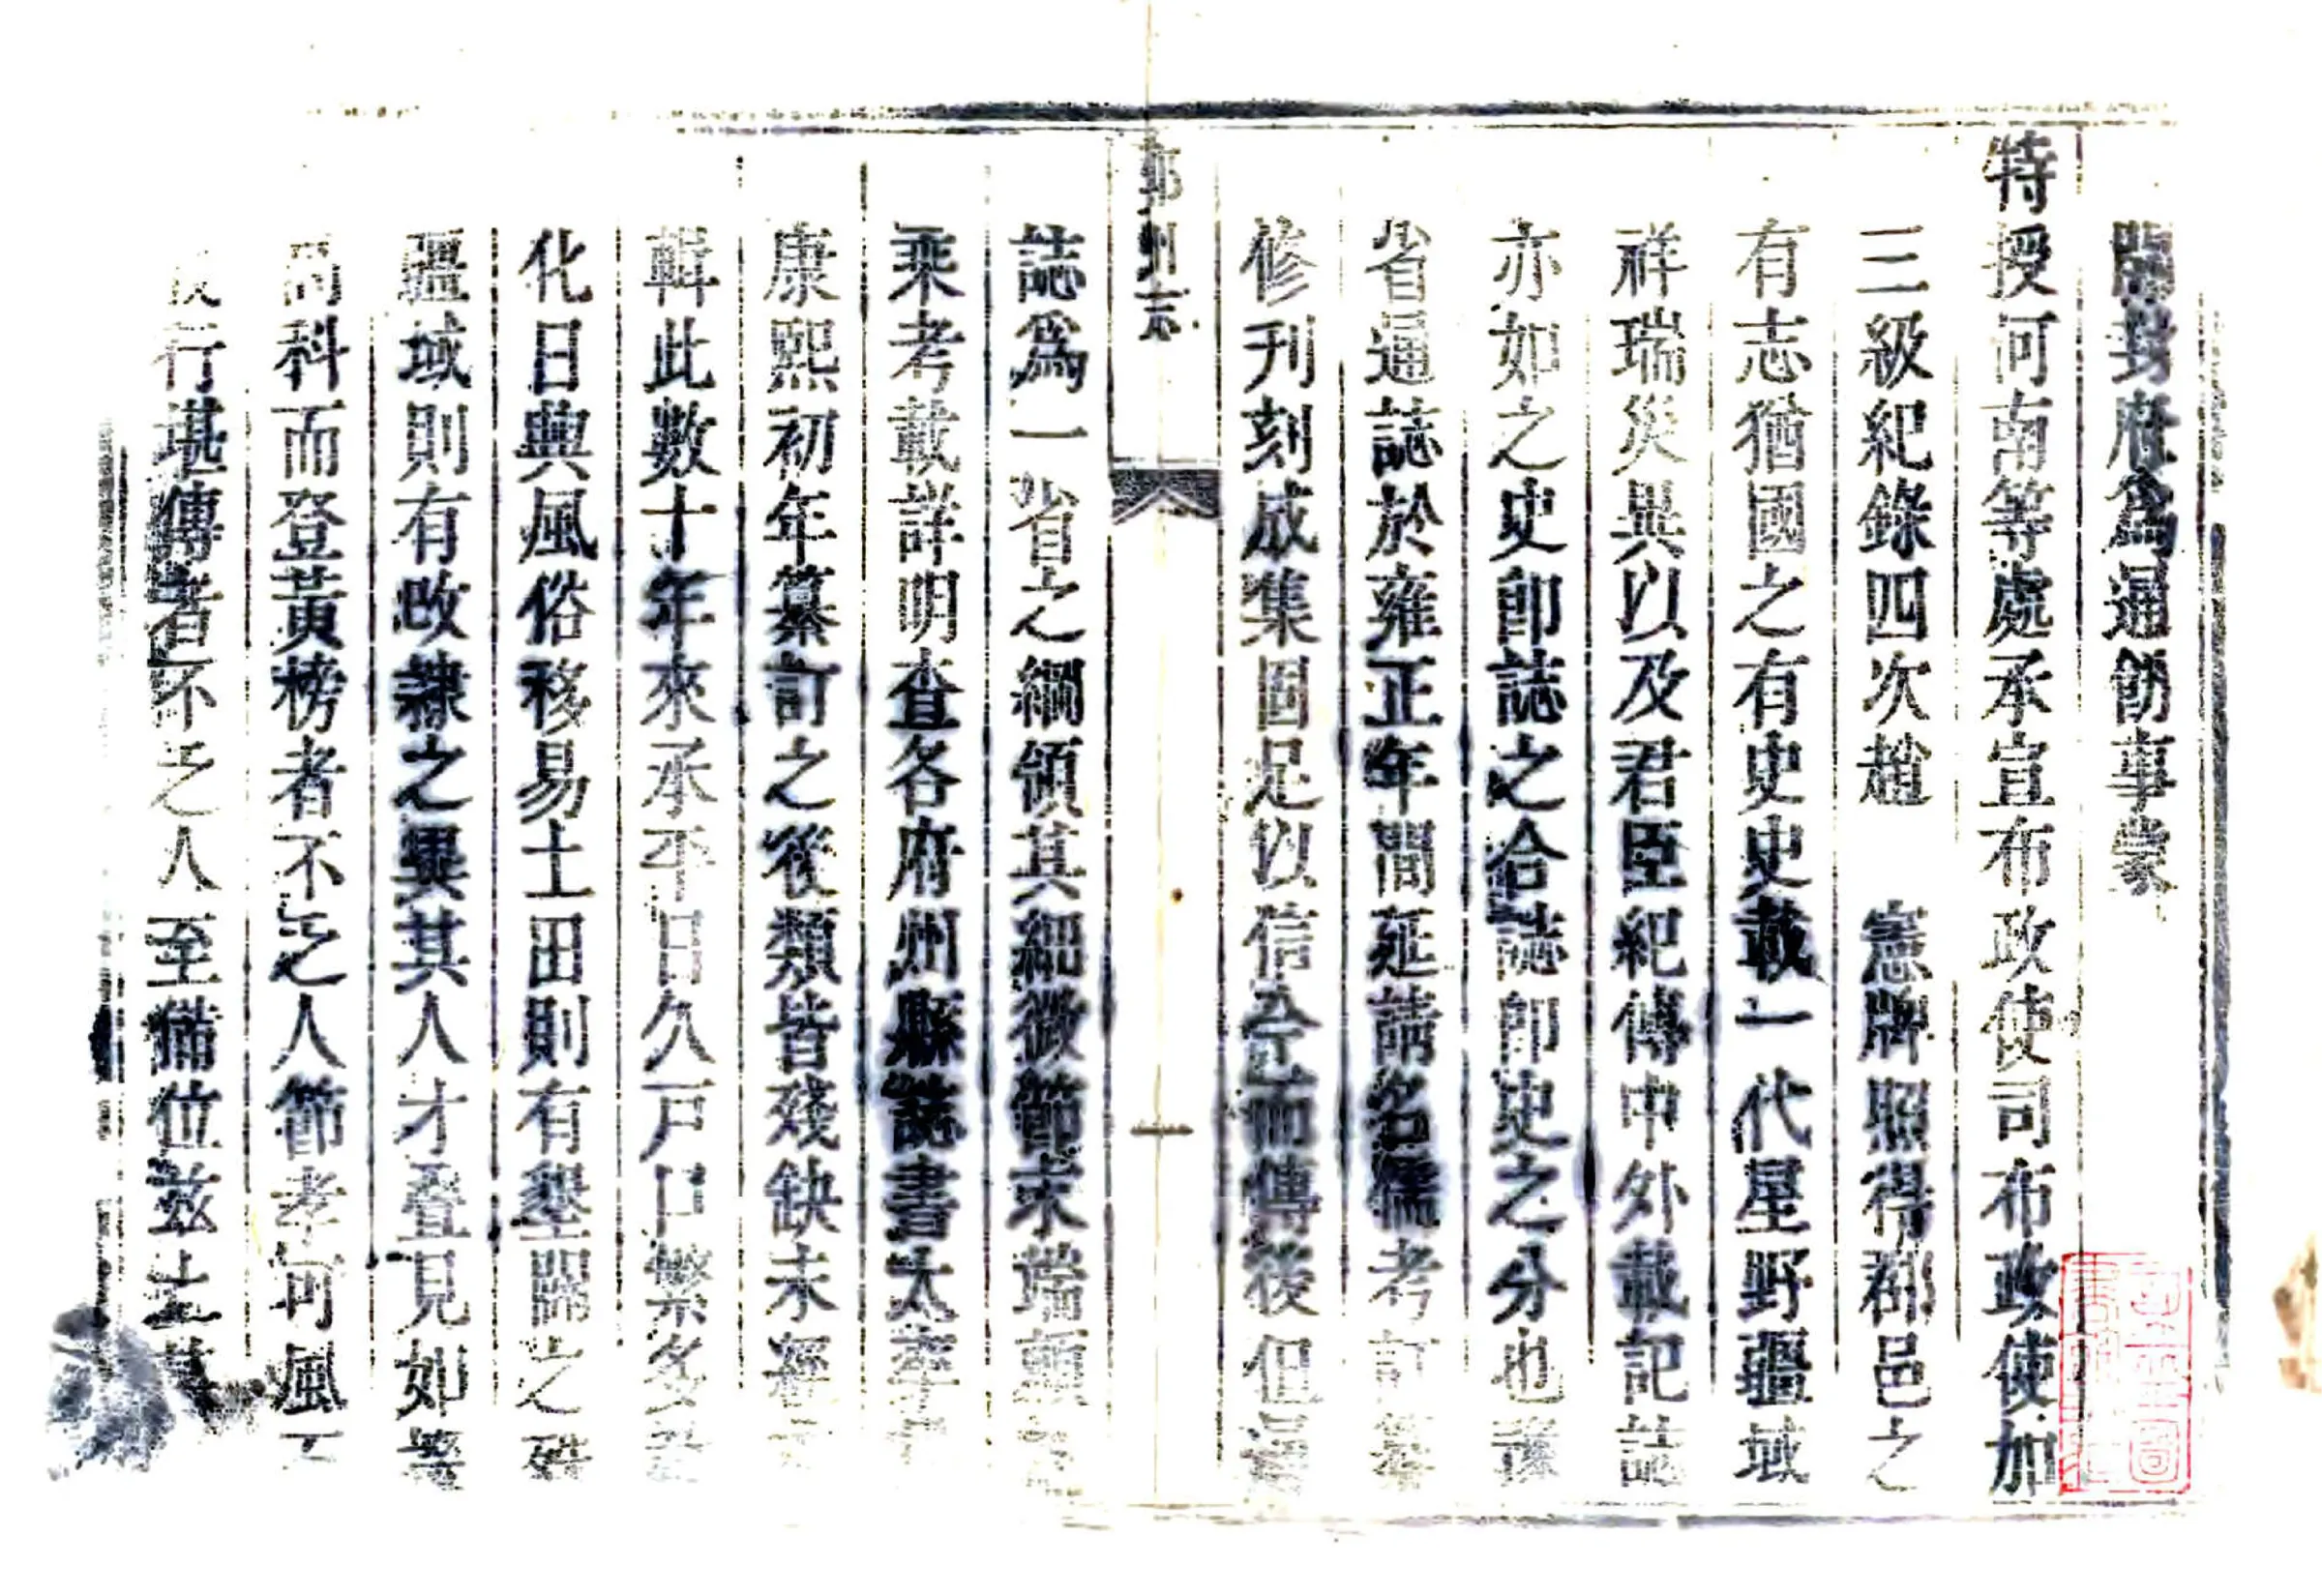 開封府爲通飭事蒙
特授河南等處承宣布政使司布政使加
三級紀錄四次趙 憲牌照得郡邑之
有志猶國之有史史載一代星野疆域
祥瑞災異以及君臣紀傳中外載記誌
亦如之史卽誌之合誌卽史之分也豫
省通誌於雍正年間延請名儒考訂纂
修刊刻成集固足以信今而傳後但通
州志
誌爲一省之綱領其細微節末端頭
乘考載詳明查各府州縣誌書大率
康熙初年纂訂之後類皆殘缺未經
輯此數十年來承平日久戶口繁多
化日典風俗移易土田則有墾闢之殊
疆域則有改隸之異其人才叠見如等
高科而登黃榜者不乏人節孝可風
行堪傳者不乏人至備位茲土